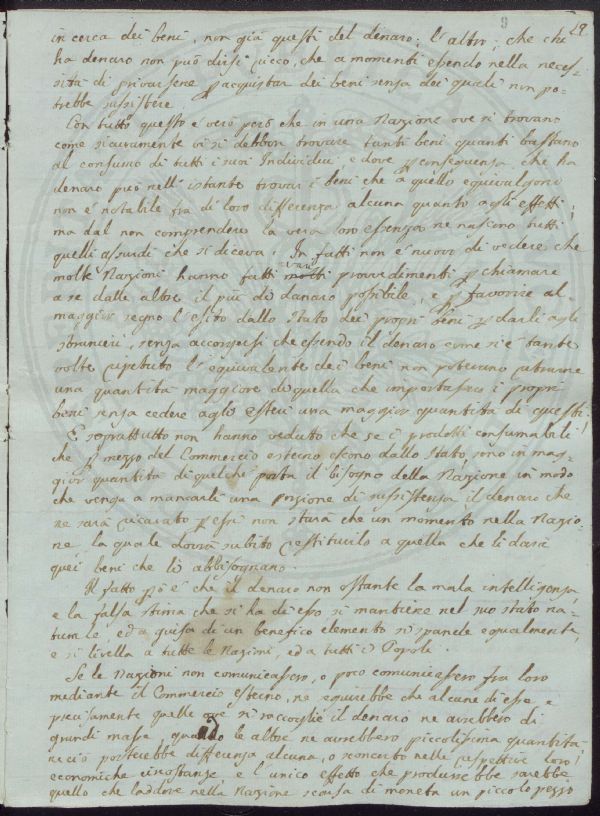 9 29
in cerca dei beni, non già questi del denaro; l'altro, che chi
ha denaro non può dirsi ricco, che a momenti essendo nella neces-
sità di privarsene p acquistar dei beni senza dei quali non po-
trebbe sussistere.
Con tutto questo è vero però che in una Nazione ove si trovano
come sicuramente vi si debbon trovare tanti beni quanti bastano
al consumo di tutti i suoi Individui, e dove p conseguenza chi ha
denaro può nell'istante trovar i beni che a quello equivalgono
non è notabile fra di loro differenza alcuna quanto agli effetti;
ma dal non comprendere la vera loro essenza ne nascono tutti
quelli assurdi che si diceva. In fatti non è nuovo di vedere che
molte Nazioni hanno fatti vari provvedimenti p chiamare
a se dalle altre il più di danaro possibile, e p favorire al
maggior segno l'esito dallo stato dei propri beni p darli agli
stranieri, senza accorgersi che essendo il denaro come si è tante
volte ripetuto l'equivalente dei beni non potevano attrarne
una quantità maggiore di quella che importassero i propri
beni senza cedere agli esteri una maggior quantità di questi.
E soprattutto non hanno veduto che se i prodotti consumabili
che p mezzo del Commercio esterno escono dallo stato sono in mag-
gior quantità di quel che porta il bisogno della Nazione in modo
che venga a mancarli una porzione di sussistenza il denaro che
ne sarà ricavato p essi non starà che un momento nella Nazio-
ne, la quale dovrà subito restituirlo a quella che li darà
quei beni che li abbisognano.
Il fatto però è che il denaro non ostante la mala intelligenza,
e la falsa stima che si ha di esso si mantiene nel suo stato na-
turale, ed a guisa di un benefico elemento si spande egualmente,
e si livella a tutte le Nazioni, ed a tutti i Popoli.
Se le Nazioni non comunicassero, o poco comunicassero fra loro
mediante il Commercio esterno, ne seguirebbe che alcune di esse, e
precisamente quelle ove si raccoglie il denaro ne avrebbero di
grandi masse, quando le altre ne avrebbero piccolissima quantità
ne ciò porterebbe differenza alcuna, o sconcerto nelle rispettive loro
economiche circostanze, e l'unico effetto che produrrebbe sarebbe
quello che laddove nella Nazione scarsa di moneta un piccolo pezzo